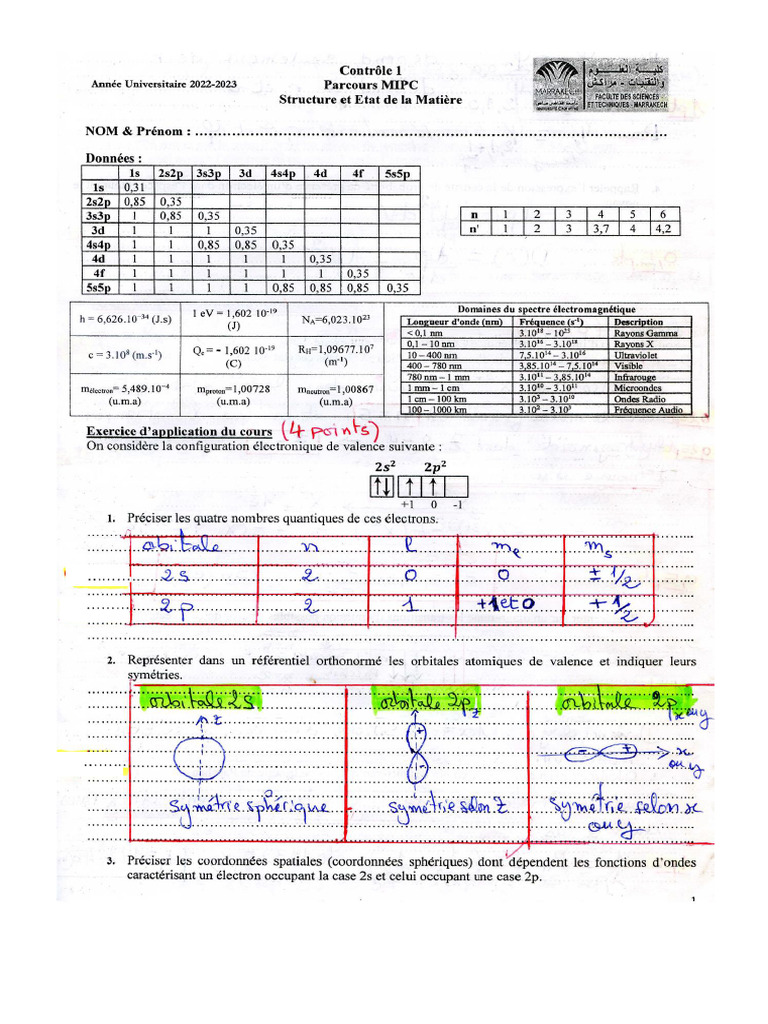 Contrôle 1
Année Universitaire 2022-2023
Parcours MIPC
Structure et Etat de la Matière
كلية العلوم
والتقنيات - مراكش
MARRAKECH
FACULTÉ DES SCIENCES
ET TECHNIQUES - MARRAKECH
NOM & Prénom : ...
Données :
1s 2s2p 3s3p 3d 4s4p 4d 4f 5s5p
1s 0,31
2s2p 0,85 0,35
3s3p 1 0,85 0,35
3d 1 1 1 0,35
4s4p 1 1 0,85 0,85 0,35
4d 1 1 1 1 1 0,35
4f 1 1 1 1 1 1 0,35
5s5p 1 1 1 1 0,85 0,85 0,85 0,35
n 1 2 3 4 5 6
n' 1 2 3 3,7 4 4,2
h = 6,626.10⁻³⁴ (J.s)
1 eV = 1,602 10⁻¹⁹
(J)
N_A=6,023.10²³
c = 3.10⁸ (m.s⁻¹)
Q_e = - 1,602 10⁻¹⁹
(C)
R_H=1,09677.10⁷
(m⁻¹)
m_électron= 5,489.10⁻⁴
(u.m.a)
m_proton=1,00728
(u.m.a)
m_neutron=1,00867
(u.m.a)
Domaines du spectre électromagnétique
Longueur d'onde (nm) Fréquence (s⁻¹) Description
< 0,1 nm 3.10¹⁸ – 10²³ Rayons Gamma
0,1 – 10 nm 3.10¹⁶ – 3.10¹⁸ Rayons X
10 – 400 nm 7,5.10¹⁴ – 3.10¹⁶ Ultraviolet
400 – 780 nm 3,85.10¹⁴ – 7,5.10¹⁴ Visible
780 nm – 1 mm 3.10¹¹ – 3,85.10¹⁴ Infrarouge
1 mm – 1 cm 3.10¹⁰ – 3.10¹¹ Microondes
1 cm – 100 km 3.10³ – 3.10¹⁰ Ondes Radio
100 – 1000 km 3.10² – 3.10³ Fréquence Audio
Exercice d'application du cours (4 points)
On considère la configuration électronique de valence suivante :
2s² 2p²
↑↓ ↑ ↑
+1 0 -1
1. Préciser les quatre nombres quantiques de ces électrons.
orbitale n l m_e m_s
2s 2 0 0 ± 1/2
2p 2 1 +1 et 0 + 1/2
2. Représenter dans un référentiel orthonormé les orbitales atomiques de valence et indiquer leurs
symétries.
orbitale 2s orbitale 2p_z orbitale 2p_x ou y
z
+
-
- + x
ou y
symétrie sphérique symétrie selon z symétrie selon x
ou y
3. Préciser les coordonnées spatiales (coordonnées sphériques) dont dépendent les fonctions d'ondes
caractérisant un électron occupant la case 2s et celui occupant une case 2p.
1